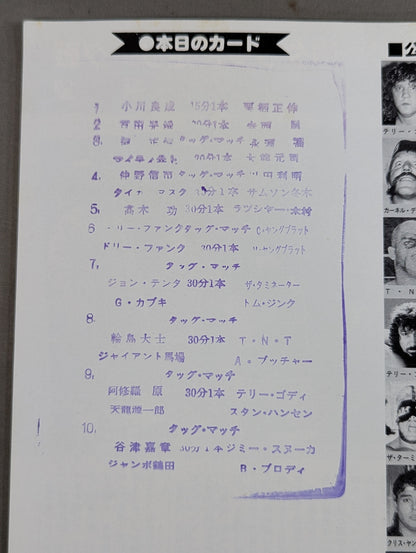 ●本日のカード
1. 小川良成 15分1本 栗栖正伸
2. 20分1本
3. タッグ・マッチ
20分1本
4. 仲野信市 タッグ・マッチ 川田利明
タイガーマスク 1本 サムソン冬木
5. 高木 功 30分1本 ラッシャー・木村
6. ・リー・ファンク タッグ・マッチ C・ヤングブラット
ドリー・ファンク 30分1本 ・ヤングブラット
7. タッグ・マッチ
ジョン・テンタ 30分1本 ザ・タミネーター
G・カブキ トム・ジンク
8. タッグ・マッチ
輪島大士 30分1本 T・N・T
ジャイアント馬場 A・ブッチャー
9. タッグ・マッチ
阿修羅 原 30分1本 テリー・ゴディ
天龍源一郎 スタン・ハンセン
10. タッグ・マッチ
谷津嘉章 30分1本 ジミー・スヌーカ
ジャンボ鶴田 B・ブロディ
■公
テリー・
カーネル・デ
T・N
テリー・
ザ・ターミ
クリス・ヤン